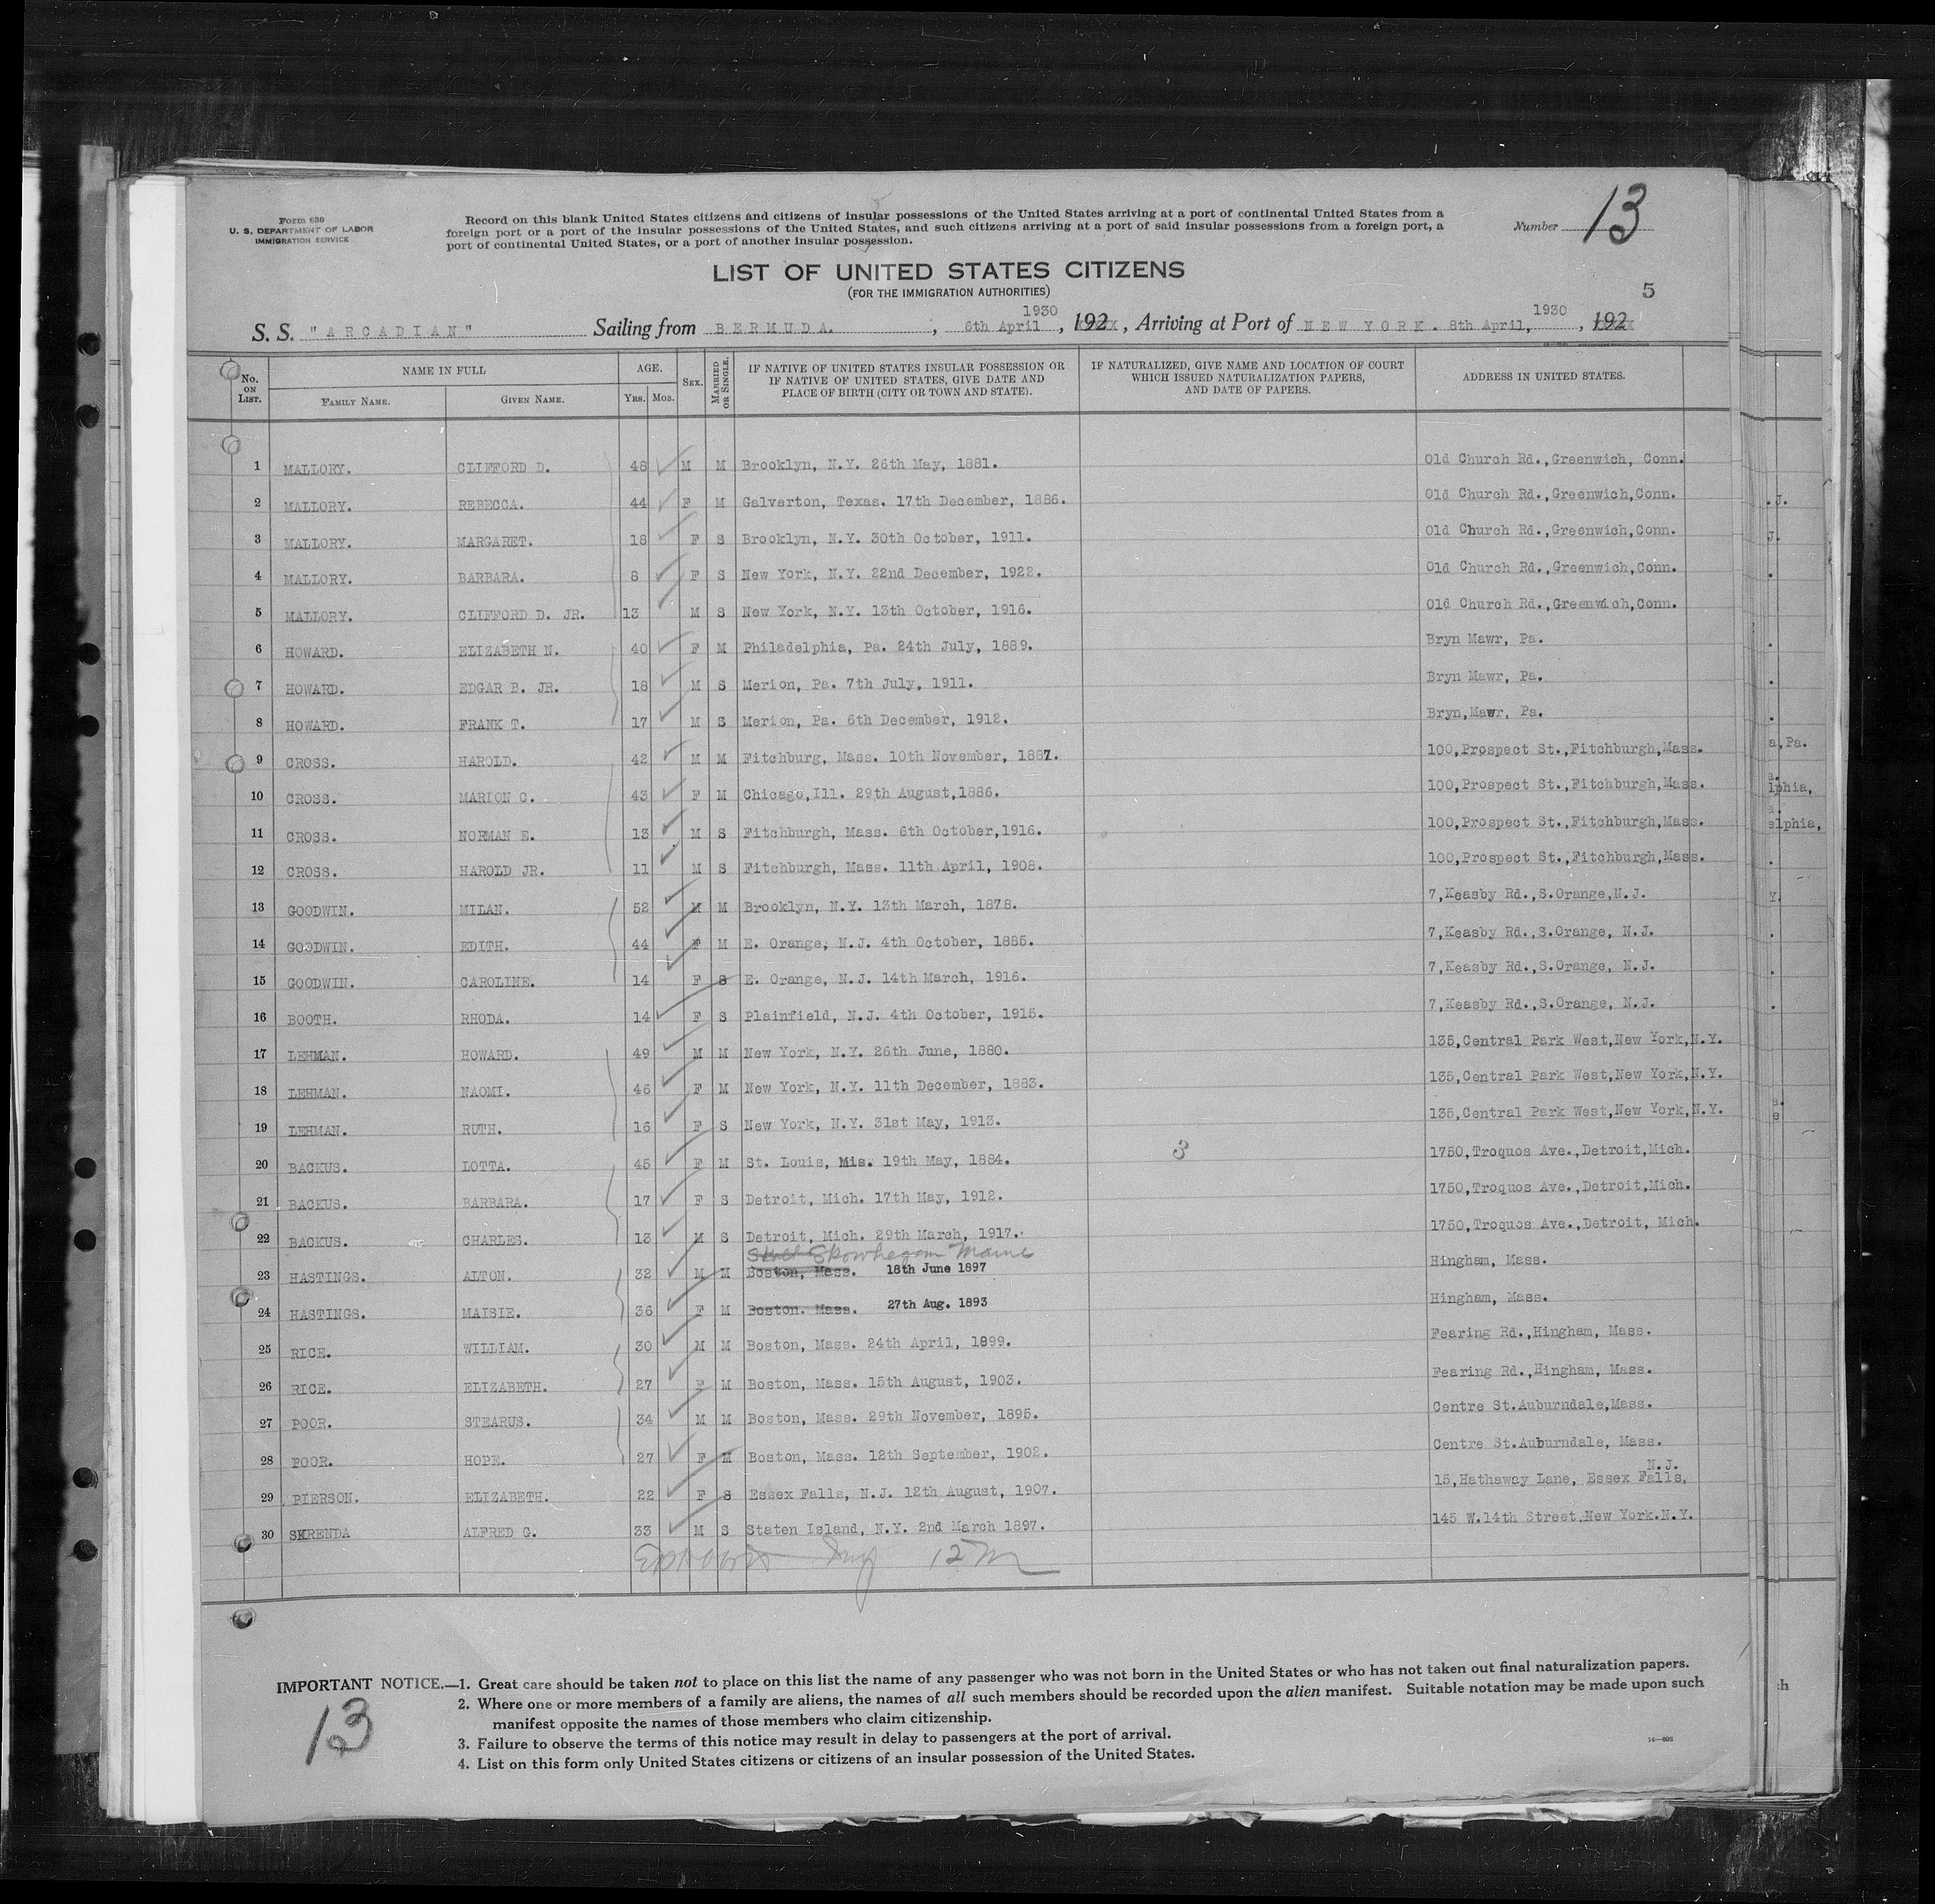 Form 630
U. S. DEPARTMENT OF LABOR
IMMIGRATION SERVICE
Record on this blank United States citizens and citizens of insular possessions of the United States arriving at a port of continental United States from a
foreign port or a port of the insular possessions of the United States, and such citizens arriving at a port of said insular possessions from a foreign port, a
port of continental United States, or a port of another insular possession.
Number 13
LIST OF UNITED STATES CITIZENS
(FOR THE IMMIGRATION AUTHORITIES)
5
S. S. "ARCADIAN" Sailing from BERMUDA. , 6th April 1930, 192 , Arriving at Port of NEW YORK. 8th April, 1930, 192
No. ON LIST. NAME IN FULL FAMILY NAME. GIVEN NAME. AGE. YRS. MOS. SEX. MARRIED OR SINGLE. IF NATIVE OF UNITED STATES INSULAR POSSESSION OR IF NATIVE OF UNITED STATES, GIVE DATE AND PLACE OF BIRTH (CITY OR TOWN AND STATE). IF NATURALIZED, GIVE NAME AND LOCATION OF COURT WHICH ISSUED NATURALIZATION PAPERS, AND DATE OF PAPERS. ADDRESS IN UNITED STATES.
1 MALLORY. CLIFFORD D. 48 M M Brooklyn, N.Y. 26th May, 1881. Old Church Rd.,Greenwich, Conn.
2 MALLORY. REBECCA. 44 F M Galverton, Texas. 17th December, 1886. Old Church Rd.,Greenwich,Conn.
3 MALLORY. MARGARET. 18 F S Brooklyn, N.Y. 30th October, 1911. Old Church Rd.,Greenwich,Conn.
4 MALLORY. BARBARA. 8 F S New York, N.Y. 22nd December, 1922. Old Church Rd.,Greenwich,Conn.
5 MALLORY. CLIFFORD D. JR. 13 M S New York, N.Y. 13th October, 1916. Old Church Rd.,Greenwich,Conn.
6 HOWARD. ELIZABETH N. 40 F M Philadelphia, Pa. 24th July, 1889. Bryn Mawr, Pa.
7 HOWARD. EDGAR B. JR. 18 M S Merion, Pa. 7th July, 1911. Bryn Mawr, Pa.
8 HOWARD. FRANK T. 17 M S Merion, Pa. 6th December, 1912. Bryn,Mawr, Pa.
9 CROSS. HAROLD. 42 M M Fitchburg, Mass. 10th November, 1887. 100,Prospect St.,Fitchburgh,Mass.
10 CROSS. MARION C. 43 F M Chicago,Ill. 29th August,1886. 100,Prospect St.,Fitchburgh,Mass.
11 CROSS. NORMAN E. 13 M S Fitchburgh, Mass. 6th October,1916. 100,Prospect St.,Fitchburgh,Mass.
12 CROSS. HAROLD JR. 11 M S Fitchburgh, Mass. 11th April, 1908. 100,Prospect St.,Fitchburgh,Mass.
13 GOODWIN. MILAN. 52 M M Brooklyn, N.Y. 13th March, 1878. 7,Keasby Rd.,S.Orange,N.J.
14 GOODWIN. EDITH. 44 F M E. Orange, N.J. 4th October, 1885. 7,Keasby Rd.,S.Orange, N.J.
15 GOODWIN. CAROLINE. 14 F S E. Orange, N.J. 14th March, 1916. 7,Keasby Rd.,S.Orange, N.J.
16 BOOTH. RHODA. 14 F S Plainfield, N.J. 4th October, 1915. 7,Keasby Rd.,S.Orange, N.J.
17 LEHMAN. HOWARD. 49 M M New York, N.Y. 26th June, 1880. 135,Central Park West,New York,N.Y.
18 LEHMAN. NAOMI. 46 F M New York, N.Y. 11th December, 1883. 135,Central Park West,New York,N.Y.
19 LEHMAN. RUTH. 16 F S New York, N.Y. 31st May, 1913. 135,Central Park West,New York,N.Y.
20 BACKUS. LOTTA. 45 F M St. Louis, Mis. 19th May, 1884. 3 1750,Troquos Ave.,Detroit,Mich.
21 BACKUS. BARBARA. 17 F S Detroit, Mich. 17th May, 1912. 1750,Troquos Ave.,Detroit,Mich.
22 BACKUS. CHARLES. 13 M S Detroit, Mich. 29th March, 1917. 1750,Troquos Ave.,Detroit, Mich.
Skowhegan Maine
23 HASTINGS. ALTON. 32 M M Boston, Mass. 18th June 1897 Hingham, Mass.
24 HASTINGS. MAISIE. 36 F M Boston. Mass. 27th Aug. 1893 Hingham, Mass.
25 RICE. WILLIAM. 30 M M Boston, Mass. 24th April, 1899. Fearing Rd.,Hingham, Mass.
26 RICE. ELIZABETH. 27 F M Boston, Mass. 15th August, 1903. Fearing Rd.,Hingham, Mass.
27 POOR. STEARUS. 34 M M Boston, Mass. 29th November, 1895. Centre St.Auburndale,Mass.
28 POOR. HOPE. 27 F M Boston, Mass. 12th September, 1902. Centre St.Auburndale, Mass.
29 PIERSON. ELIZABETH. 22 F S Essex Falls, N.J. 12th August, 1907. 15,Hathaway Lane, Essex Falls, N.J.
30 SKRENDA ALFRED G. 33 M S Staten Island, N.Y. 2nd March 1897. 145 W.14th Street.New York.N.Y.
IMPORTANT NOTICE.—1. Great care should be taken not to place on this list the name of any passenger who was not born in the United States or who has not taken out final naturalization papers.
2. Where one or more members of a family are aliens, the names of all such members should be recorded upon the alien manifest. Suitable notation may be made upon such
manifest opposite the names of those members who claim citizenship.
3. Failure to observe the terms of this notice may result in delay to passengers at the port of arrival.
4. List on this form only United States citizens or citizens of an insular possession of the United States.
13